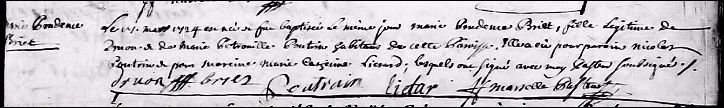 Marie Prudence
Briet
Le 17 mars 1724 est née et fut baptisée le même jour marie prudence Briet, fille legitime de
Druon et de marie petronille poutrin habitans de cette paroisse. Elle a eu pour parein nicolas
poutrin et pour mareine marie Liénard, lesquels ont signé avec moy pasteur soubsigné
druon briet Poutrain lidar